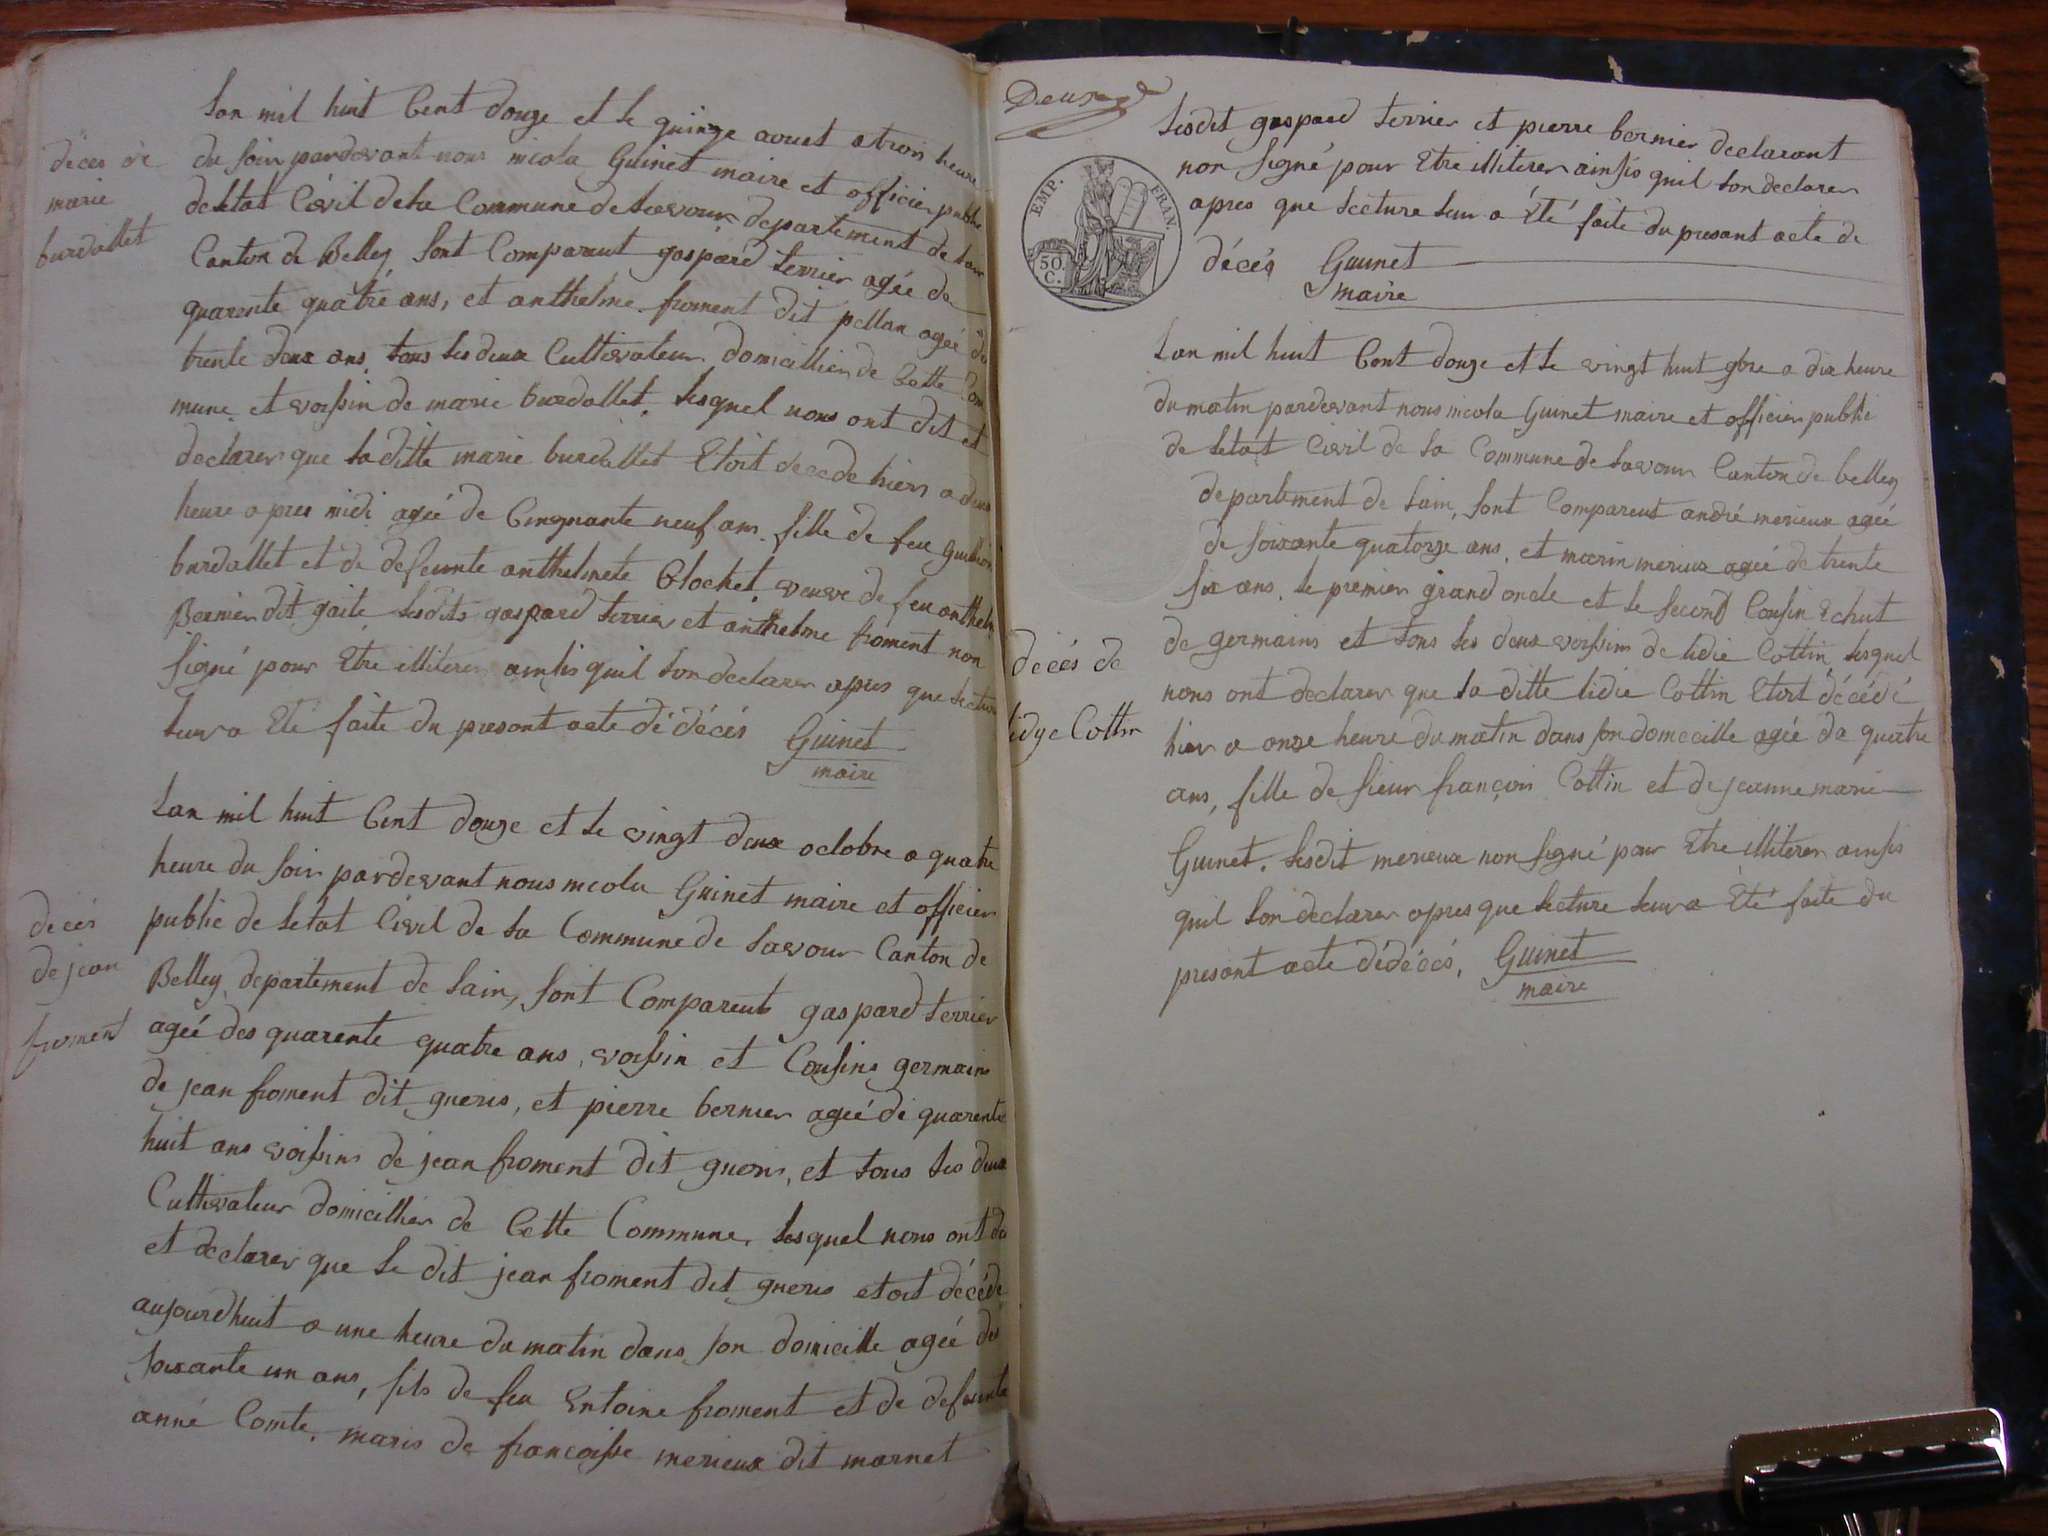 décès de
marie
burdallet
Lan mil huit Cent douze et le quinze aout a trois heure
du soir pardevant nous nicola Guinet maire et officier public
de letat Civil de la Commune de Lavour departement de lain
Canton de Belley sont Comparent gaspard terrier agée de
quarente quatre ans, et anthelme froment dit pellan agée de
trente deux ans, tous les deux Cultivateur domicillier de Cette Com
mune, et voisin de marie burdallet, lesquel nous ont dit et
declarer que la ditte marie burdallet Etoit decede hiers a deux
heure apres midi agée de Cinquante neuf ans, fille de feu
burdallet et de defeunte anthelmete Clochet, veuve de feu anthelme
Bernier dit gaite, lesdits gaspard terrier et anthelme froment non
signé pour Etre illiterer ainsis quil lon declarer apres que lecture
leur a Eté faite du present acte dé décés Guinet
maire
décés
de jean
froment
Lan mil huit Cent douze et le vingt deux octobre a quatre
heure du soir pardevant nous nicola Guinet maire et officier
public de letat Civil de la Commune de Lavour Canton de
Belley, departement de lain, sont Comparents gaspard terrier
ageé des quarente quatre ans, voisin et Cousins germains
de jean froment dit gueris, et pierre bernier ageé de quarente
huit ans voisins de jean froment dit gueris, et tous les deux
Cultivateur domicillier de Cette Commune, lesquel nous ont dit
et declarer que le dit jean froment dit gueris etoit décédé
aujourdhuit a une heure du matin dans son domicille ageé des
soixante un ans, fils de feu Entoine froment et de defeunte
anné Comte, maris de francoisse merieux dit marnet
Deux
EMP. FRAN.
50
C.
lesdit gaspard terrier et pierre bernier declarant
non signé pour Etre illiterer ainsis quil lon declarer
apres que lecture leur a Eté faite du present acte de
décés Guinet
maire
décés de
lidye Cottin
Lan mil huit Cent douze et le vingt huit 9bre a dix heure
du matin pardevant nous nicola Guinet maire et officier public
de letat Civil de la Commune de Lavour Canton de belley
departement de lain, sont Comparent andré merieux ageé
de soixante quatorze ans, et marin merieux ageé de trente
six ans, le premier grand oncle et le second Cousin Echut
de germains et tous les deux voisins de lidie Cottin, lesquel
nous ont declarer que la ditte lidie Cottin Etoit décédé
hier a onze heure du matin dans son domecille ageé de quatre
ans, fille de sieur françois Cottin et de jeanne marie
Guinet, lesdit merieux non signé pour Etre illiterer ainsis
quil lon declarer apres que lecture leur a Eté faite du
present acte dé décés, Guinet
maire